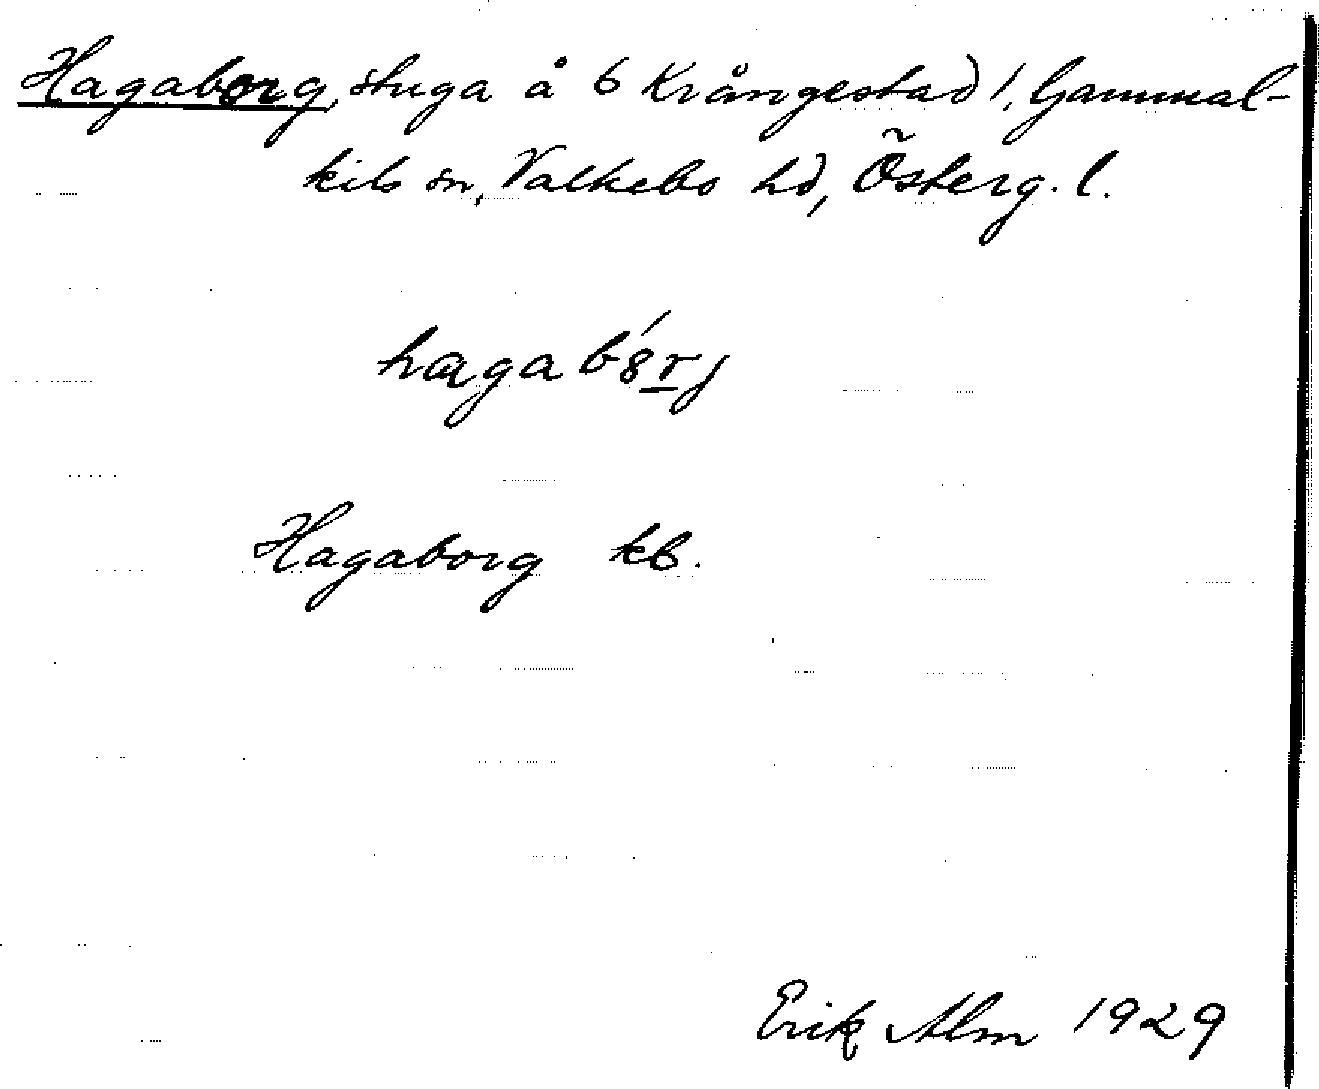 Hagaborg, stuga å 6 Krångestad 1, Gammal-
kils sn, Valkebo hd, Österg. l.
hagab
Hagaborg kb.
Erik Alm 1929